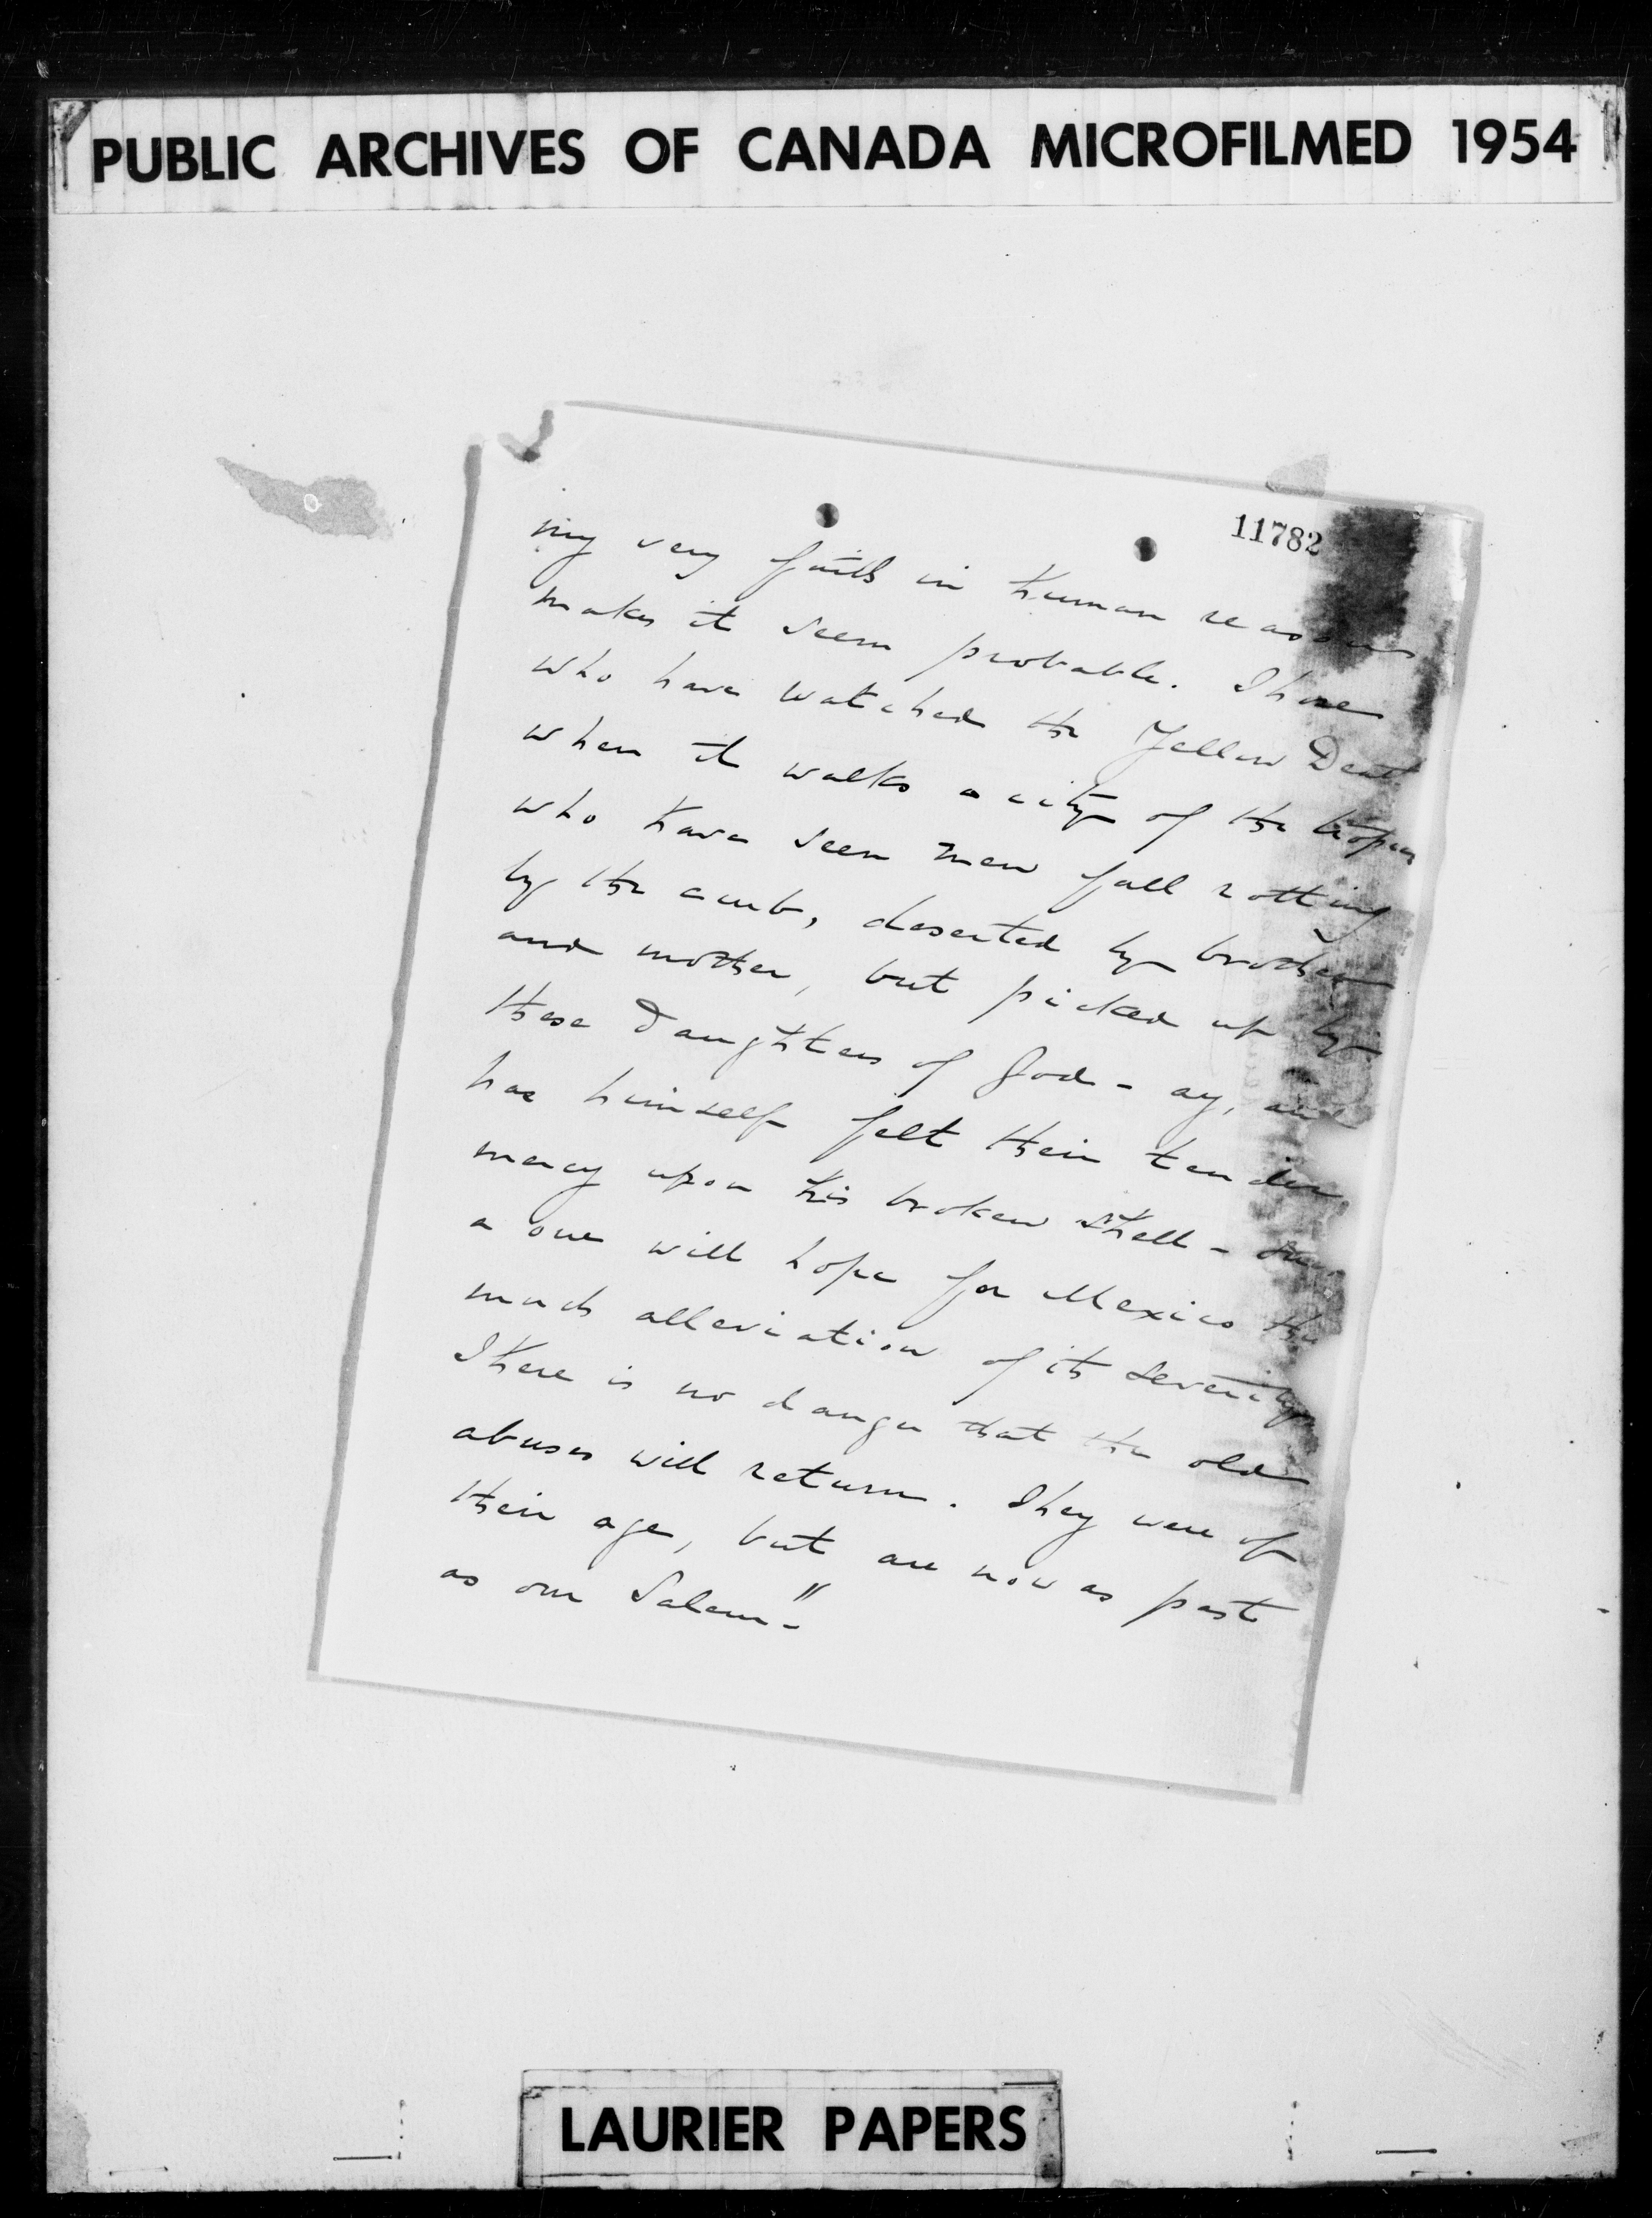 PUBLIC ARCHIVES OF CANADA MICROFILMED 1954
11782
my very faith in human reasons
makes it seem probable. Those
who have watched the Yellow Death
when it walks a city of the tropics
who have seen men fall rotting
by the curb, deserted by brother
and mother, but picked up by
these Daughters of God - ay, and
has himself felt their tender
mercy upon his broken shell -
a one will hope for Mexico this
much alleviation of its severity
There is no danger that the old
abuses will return. They were of
their age, but are now as past
as our Salem"-
LAURIER PAPERS